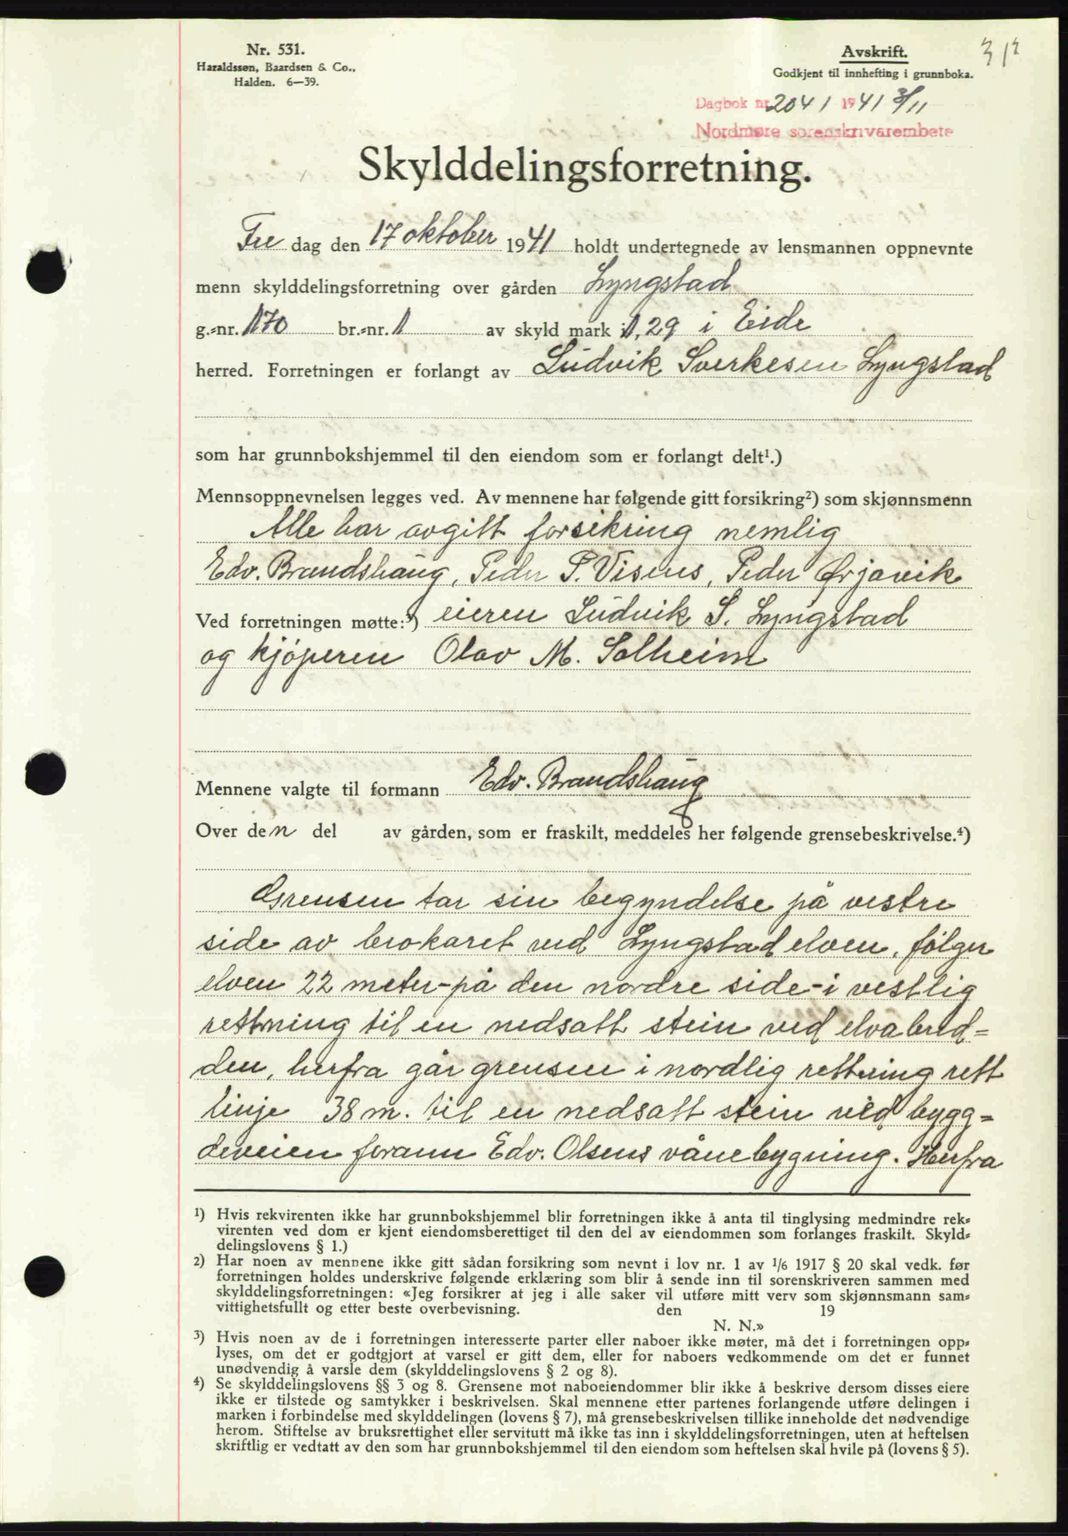 Nr. 531.
Haraldssøn, Baardsen & Co.,
Halden. 6—39.
Avskrift.
Godkjent til innhefting i grunnboka.
312
Dagbok nr. 2041 1941 3/11
Nordmøre sorenskrivarembete
Skylddelingsforretning.
Fre dag den 17 oktober 1941 holdt undertegnede av lensmannen oppnevnte
menn skylddelingsforretning over gården Lyngstad
g.-nr. 170 br.-nr. 1 av skyld mark 1,29 i Eide
herred. Forretningen er forlangt av Ludvik Sverkesen Lyngstad
som har grunnbokshjemmel til den eiendom som er forlangt delt¹.)
Mennsoppnevnelsen legges ved. Av mennene har følgende gitt forsikring²) som skjønnsmenn
Alle har avgitt forsikring nemlig
Edv. Brandshaug, Peder P. Visnes, Peder Ørjavik
Ved forretningen møtte:³) eieren Ludvik S. Lyngstad
og kjøperen Olav M. Solheim
Mennene valgte til formann Edv. Brandshaug
Over den del av gården, som er fraskilt, meddeles her følgende grensebeskrivelse.⁴)
Grensen tar sin begyndelse på vestre
side av brokaret ved Lyngstad elven, følger
elven 22 meter - på den nordre side - i vestlig
rettning til en nedsatt stein ved elvabred=
den, herfra går grensen i nordlig rettning rett
linje 38 m. til en nedsatt stein ved bygg=
deveien forann Edv. Olsens vånebygning. Herfra
¹) Hvis rekvirenten ikke har grunnbokshjemmel blir forretningen ikke å anta til tinglysing medmindre rek-
virenten ved dom er kjent eiendomsberettiget til den del av eiendommen som forlanges fraskilt. Skyld-
delingslovens § 1.)
²) Har noen av mennene ikke gitt sådan forsikring som nevnt i lov nr. 1 av 1/6 1917 § 20 skal vedk. før
forretningen holdes underskrive følgende erklæring som blir å sende inn til sorenskriveren sammen med
skylddelingsforretningen: «Jeg forsikrer at jeg i alle saker vil utføre mitt verv som skjønnsmann sam-
vittighetsfullt og etter beste overbevisning. den 19
N. N.»
³) Hvis noen av de i forretningen interesserte parter eller naboer ikke møter, må det i forretningen opp-
lyses, om det er godtgjort at varsel er gitt dem, eller for naboers vedkommende om det er funnet
unødvendig å varsle dem (skylddelingslovens § 2 og 8).
⁴) Se skylddelingslovens §§ 3 og 8. Grensene mot naboeiendommer blir ikke å beskrive dersom disses eiere
ikke er tilstede og samtykker i beskrivelsen. Skal mennene etter partenes forlangende utføre delingen i
marken i forbindelse med skylddelingen (lovens § 7), må grensebeskrivelsen tillike inneholde det nødvendige
herom. Stiftelse av bruksrettighet eller servitutt må ikke tas inn i skylddelingsforretningen, uten at heftelsen
skriftlig er vedtatt av den som har grunnbokshjemmel til den eiendom som heftelsen skal hvile på (lovens § 5).